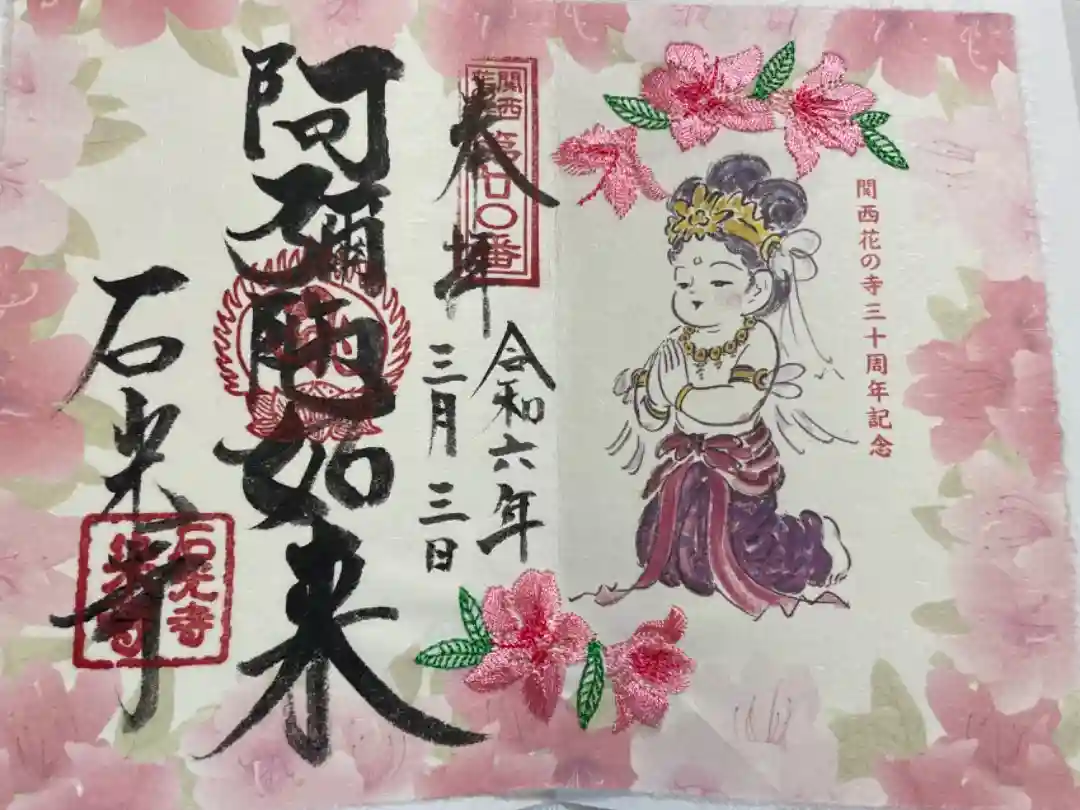 関西花の寺三十周年記念
関西
花の寺
第廿〇番
奉拝
令和六年
三月三日
阿彌陀如来
石光寺
石光寺